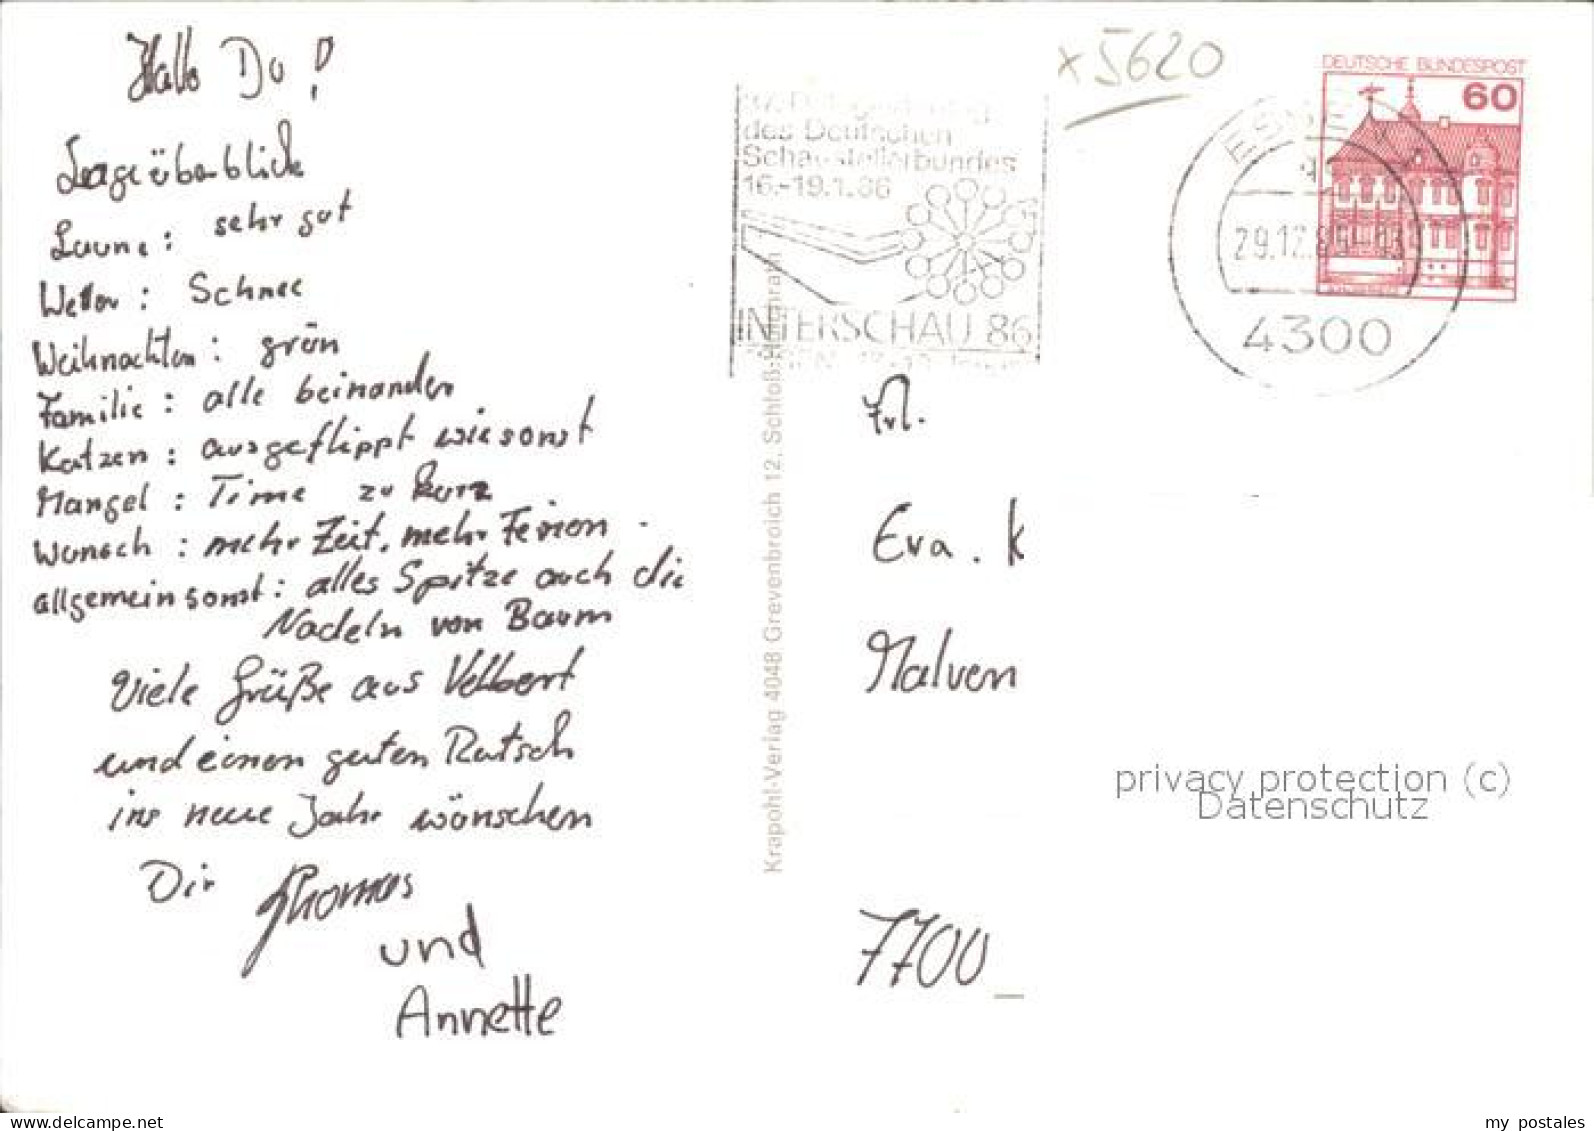 Hallo Du!
Lageüberblick
Laune: sehr gut
Wetter: Schnee
Weihnachten: grün
Familie: alle beinander
Katzen: ausgeflippt wie sonst
Mangel: Time zu kurz
Wunsch: mehr Zeit, mehr Ferien.
allgemein sonst: alles Spitze auch die
Nadeln von Baum
Viele Grüße aus Velbert
und einen guten Rutsch
ins neue Jahr wünschen
Dir Thomas
und
Annette
Krapohl-Verlag 4048 Grevenbroich 12, Schloß Hülchrath
des Deutschen
Schaustellerbundes
16.-19.1.86
INTERSCHAU 86
x 5620
DEUTSCHE BUNDESPOST
60
ESSEN
29.12.85-13
4300
Frl.
Eva. K
Malven
7700
privacy protection (c)
Datenschutz
my postales